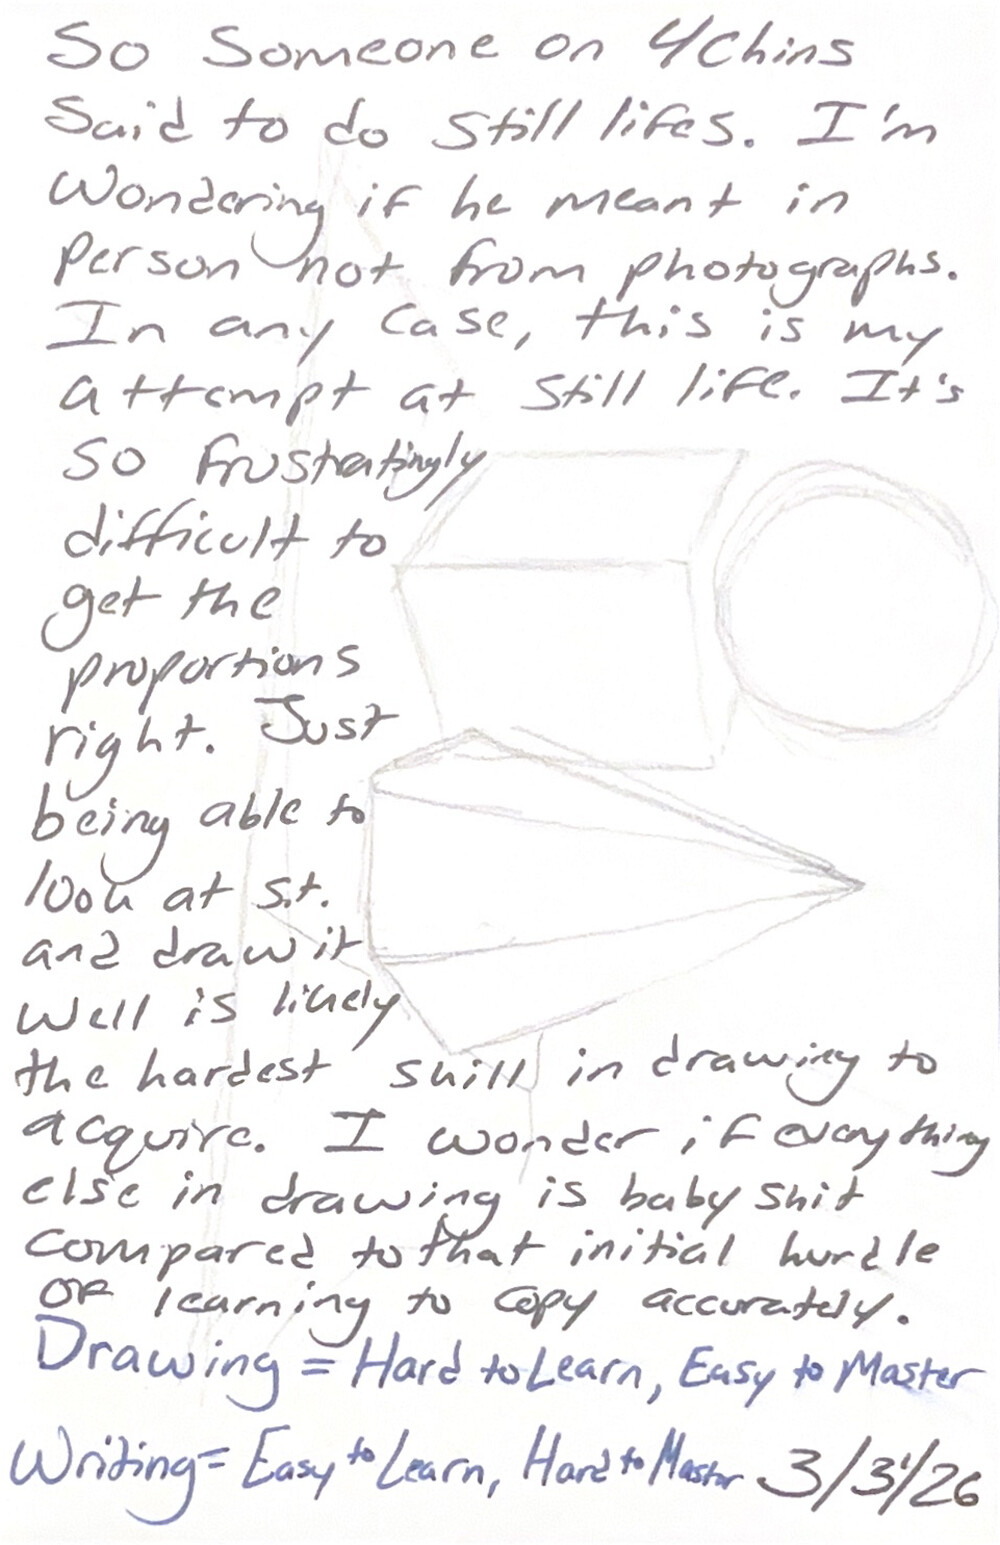 So Someone on 4chins
Said to do still lifes. I'm
Wondering if he meant in
Person not from photographs.
In any Case, this is my
attempt at Still life. It's
So frustratingly
difficult to
get the
proportions
right. Just
being able to
look at s.t.
and draw it
Well is likely
the hardest skill in drawing to
acquire. I wonder if everything
else in drawing is baby shit
compared to that initial hurdle
OF learning to copy accurately.
Drawing = Hard to Learn, Easy to Master
Writing = Easy to Learn, Hard to Master 3/31/26